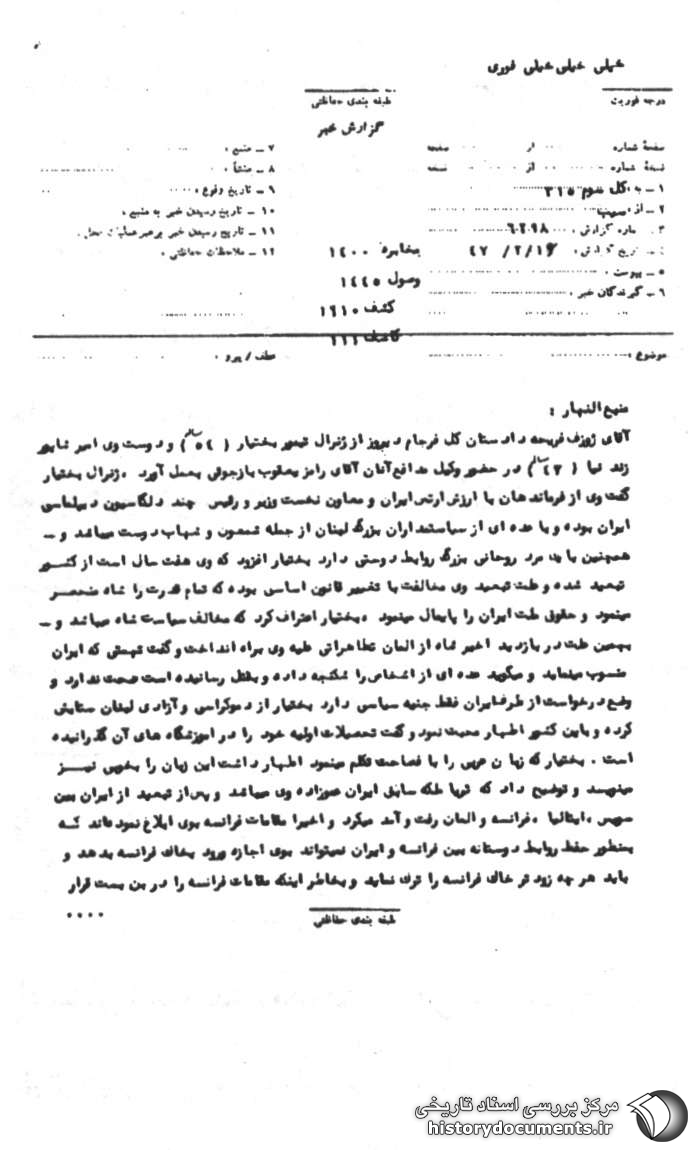 خیلی خیلی خیلی فوری
درجه فوریت
طبقه بندی حفاظتی
گزارش خبر
صفحهٔ شماره از صفحه
نسخهٔ شماره از نسخه
۱ ــ به کل سوم ۳۱۵
۲ ــ از سیب
۳ ـ شماره گزارش ۶۲۹۸
تاریخ گزارش ۴۷/۲/۱۶
۵ ــ پیوست
۶ ــ گیرندگان خبر
۷ ــ منبع
۸ ــ منشأ
۹ ــ تاریخ وقوع
۱۰ ــ تاریخ رسیدن خبر به منبع
۱۱ ــ تاریخ رسیدن خبر برهبر عملیات محل
۱۲ ــ ملاحظات حفاظتی
مخابره ۱۴۰۰
وصول ۱۴۴۵
کشف ۱۶۱۰
کاشف ۱۱۱
موضوع
عطف / پیرو
منبع النهار :
آقای ژوزف فریحه دادستان کل فرجام دیروز از ژنرال تیمور بختیار ( ۵۴ ساله) و دوست وی امیر شاپور
زند نیا ( ۴۳ ساله) در حضور وکیل مدافع آنان آقای رامز یعقوب بازجوئی بعمل آورد . ژنرال بختیار
گفت وی از فرماندهان با ارزش ارتش ایران و معاون نخست وزیر و رئیس چند دلگاسیون دیپلماسی
ایران بوده و با عده ای از سیاستمداران بزرگ لبنان از جمله شمعون و شهاب دوست میباشد و ــ
همچنین با یک مرد روحانی بزرگ روابط دوستی دارد بختیار افزود که وی هفت سال است از کشور
تبعید شده و علت تبعید وی مخالفت با تغییر قانون اساسی بوده که تمام قدرت را شاه منحصر
مینمود و حقوق ملت ایران را پایمال مینمود . بختیار اعتراف کرد که مخالف سیاست شاه میباشد و ــ
بهمین علت در بازدید اخیر شاه از المان تظاهراتی علیه وی براه انداخت و گفت تهمتی که ایران
منسوب مینماید و میگوید عده ای از اشخاص را شکنجه داده و بقتل رسانیده است صحت ندارد و
وضع درخواست از طرف ایران فقط جنبه سیاسی دارد بختیار از دموکراسی و آزادی لبنان ستایش
کرده و باین کشور اظهار محبت نمود و گفت تحصیلات اولیه خود را در اموزشگاه های آن گذرانیده
است . بختیار که زبان عربی را با فصاحت تکلم مینمود اظهار داشت این زبان را بخوبی نیــز
مینویسد و توضیح داد که ثریا ملکه سابق ایران عموزاده وی میباشد و پس از تبعید از ایران بین
سویس ، ایتالیا ، فرانسه و المان رفت و آمد میکرد و اخیرا مقامات فرانسه بوی ابلاغ نموده‌اند کــه
بمنظور حفظ روابط دوستانه بین فرانسه و ایران نمیتواند بوی اجازه ورود بخاک فرانسه بدهد و
باید هرچه زود تر خاک فرانسه را ترک نماید و بخاطر اینکه مقامات فرانسه را در بن بست قرار
۰۰۰۰
طبقه بندی حفاظتی
مرکز بررسی اسناد تاریخی
historydocuments.ir